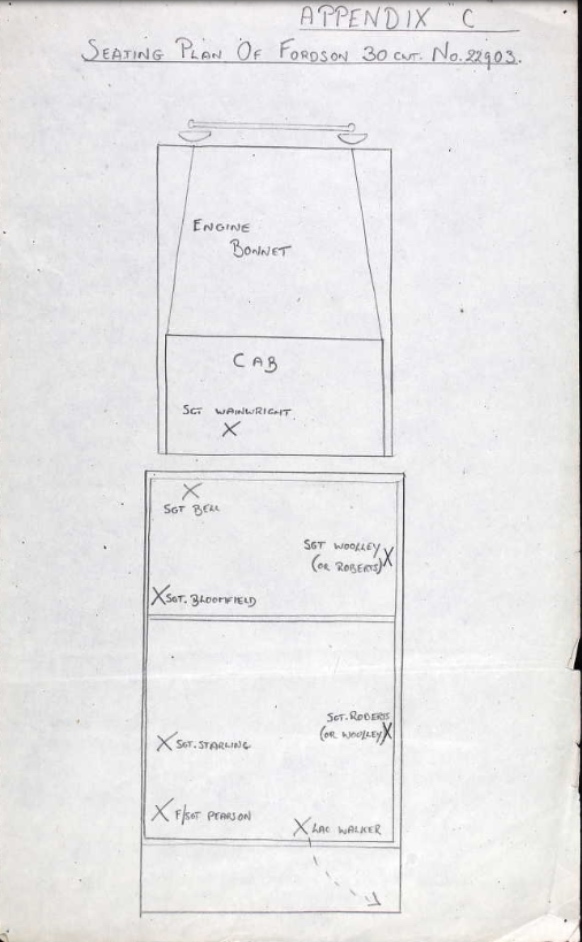 APPENDIX C
SEATING PLAN OF FORDSON 30 CWT. NO. 22903.
ENGINE
BONNET
CAB
SGT WAINWRIGHT
X
X
SGT BELL
SGT WOOLLEY X
(OR ROBERTS)
X SGT. BLOOMFIELD
SGT. ROBERTS
(OR WOOLLEY) X
X SGT. STARLING
X F/SGT PEARSON
X LAC WALKER